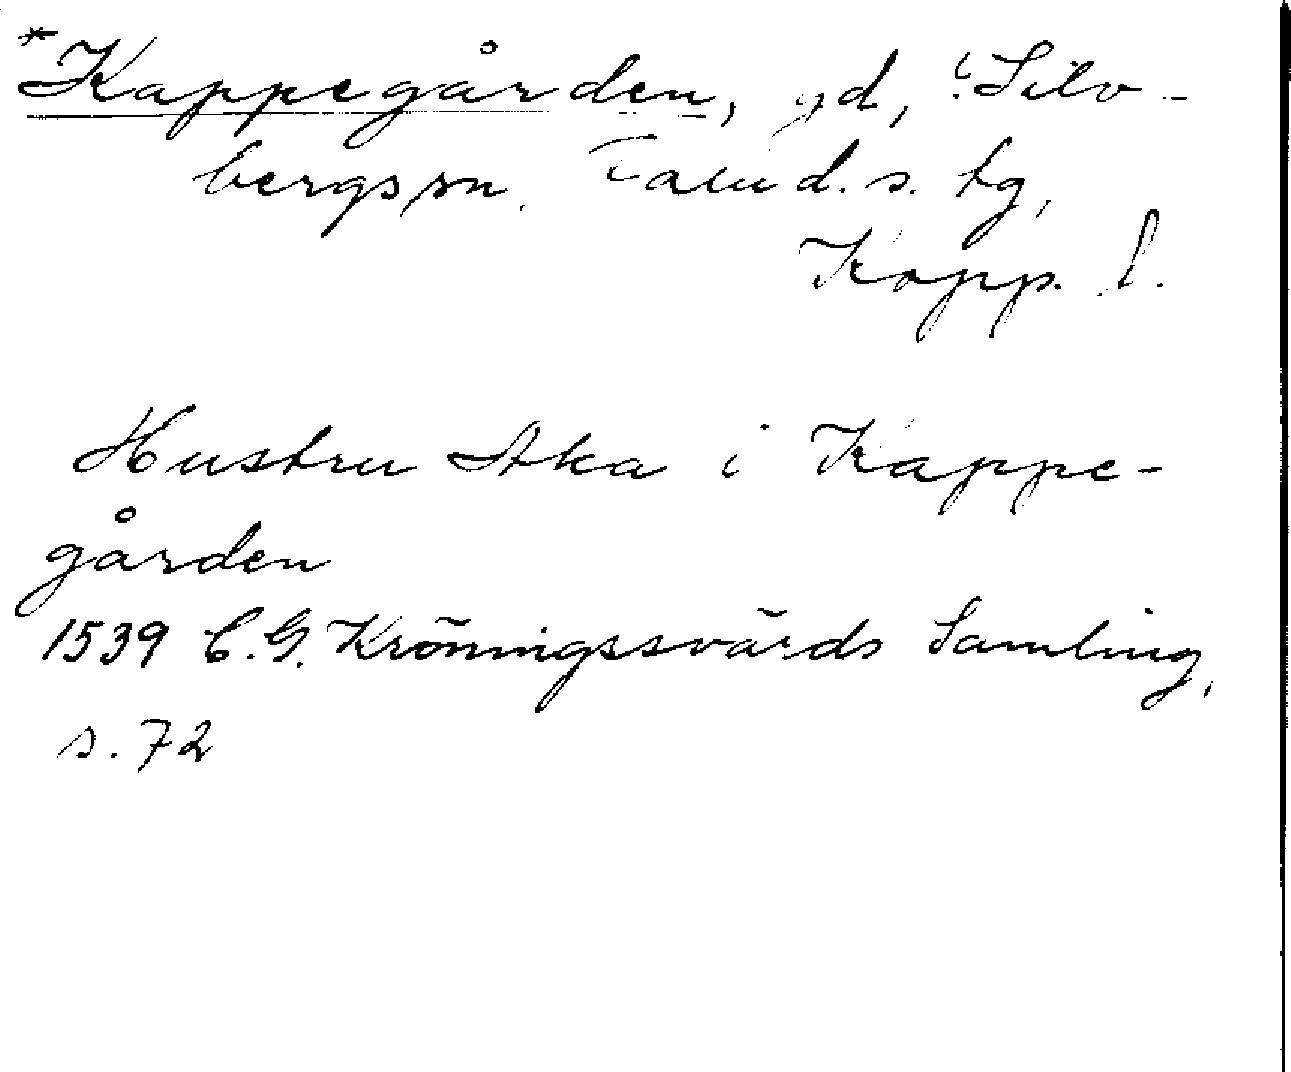 *Kappegården, gd, i Silv-
bergs sn. Falu d. s. tg,
Kopp. l.
Hustru Aka i Kappe-
gården
1539 C.G. Kröningssvärds Samling,
s. 72